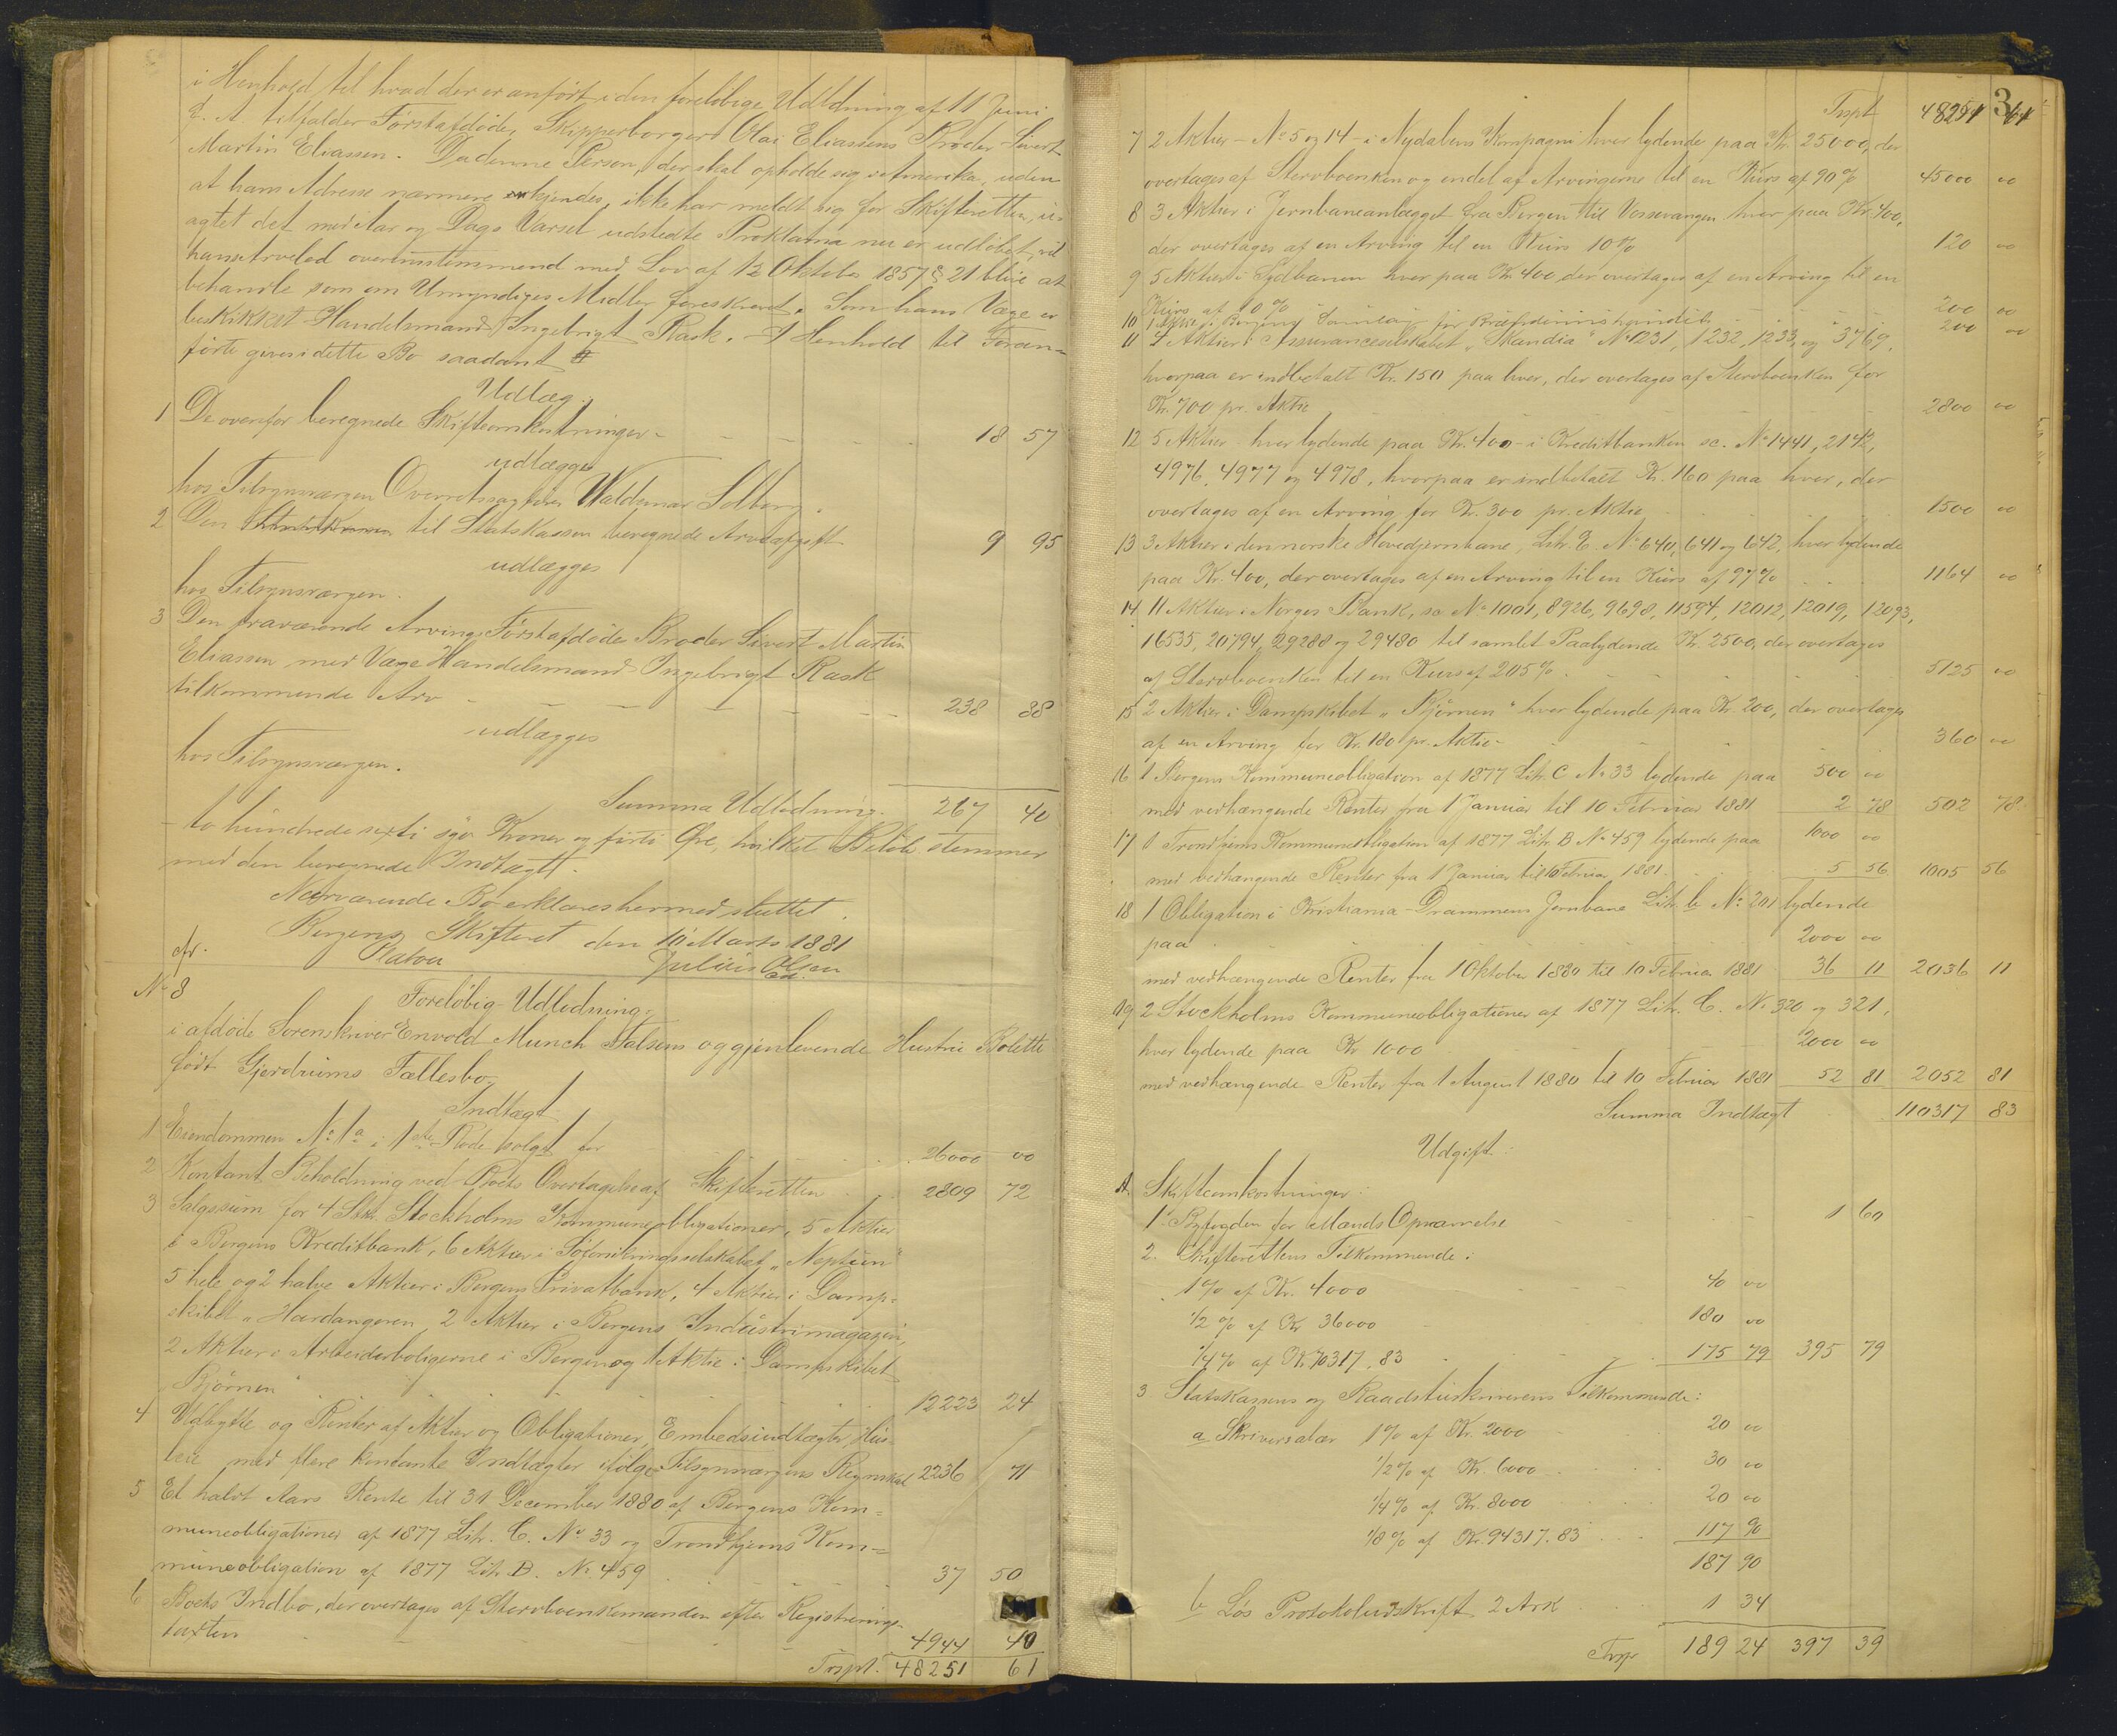 i Henhold til hvad der er anført i den foreløbige Udlodning af 11 Juni
f. A. tilfalder Førstafdøde, Skipperborger Olai Eliassens Broder Sivert
Martin Eliassen. Da denne Person, der skal opholde sig i Amerika, uden
at hans Adresse nærmere kjendes, ikke har meldt sig for Skifteretten, u-
agtet det med Aar og Dags Varsel udstedte Proklama nu er udløbet, vil
hans Arvelod overensstemmend med Lov af 12 Oktober 1857 § 21 blive at
behandle som om Umyndiges Midler foreskrevet. Som hans Værge er
beskikket Handelsmand Ingebrigt Rask. I Henhold til Foran-
førte gives i dette Bo saadant
Udlæg.
1 De ovenfor beregnede Skifteomkostninger - 18 57
udlægges
hos Tilsynsværgen Overretssagfører Waldemar Solberg.
2 Den til Statskassen beregnede Arveafgift 9 95
udlægges
hos Tilsynsværgen.
3 Den fraværende Arving Førstafdødes Broder Sivert Martin
Eliassen med Værge Handelsmand Ingebrigt Rask
tilkommende Arv - 238 88
udlægges
hos Tilsynsværgen.
Summa Udlodning. 267 40
- to hundrede sexti syv Kroner og førti Øre, hvilket Beløb stemmer
med den beregnede Indtægt.
Nærværende Bo erklæres hermed sluttet.
Bergens Skifteret den 10 Marts 1881
Platou Julius Olsen
No 8
Foreløbig Udlodning
i afdøde Sorenskriver Envold Munch Falsens og gjenlevende Hustru Bolette
født Gjerdrums Fællesbo,
Indtægt
1 Eiendommen No 1a i 1ste Rode solgt for 26000 00
2 Kontant Beholdning ved Boets Overtagelse af Skifteretten 2809 72
3 Salgssum for 4 Stk. Stockholms Kommuneobligationer, 5 Aktier
i Bergens Kreditbank, 6 Aktier i Søforsikringsselskabet "Neptun"
5 hele og 2 halve Aktier i Bergens Privatbank, 4 Aktier i Damp-
skibet "Hardangeren, 2 Aktier i Bergens Industrimagazin,
2 Aktier i Arbeiderboligerne i Bergen og 1 Aktie i Dampskibet
Bjørnen" 12223 24
4 Udbytte og Renter af Aktier og Obligationer, Embedsindtægter, Hus-
leie med flere kontante Indtægter ifølge Tilsynsværgens Regnskab 2236 71
5 Et halvt Aars Rente til 31 December 1880 af Bergens Kom-
muneobligationer af 1877 Litr. C. No 33 og Trondhjems Kom-
muneobligation af 1877 Litr. B. No 459 37 50
6 Boets Indbo, der overtages af Stervboenkemanden efter Registrerings-
taxten 4944 40
Trspt. 48251 61
Trspt 48251 61
7 2 Aktier - No 5 og 14 - i Nydalens Kompagni hver lydende paa Kr. 25000, der
overtages af Stervboenken og endel af Arvingerne til en Kurs af 90% 45000 00
8 3 Aktier i Jernbaneanlægget fra Bergen til Vossevangen hver paa Kr. 400,
der overtages af en Arving til en Kurs 10% 120 00
9 5 Aktier i Sydbanen hver paa Kr. 400 der overtages af en Arving til en
Kurs af 10% 200 00
10 1 Aktie i Bergens 200 00
11 4 Aktier i Assuranceselskabet "Skandia" No 1231, 1232, 1233, og 3769,
hvorpaa er indbetalt Kr. 150 paa hver, der overtages af Stervboenken for
Kr. 700 pr. Aktie 2800 00
12 5 Aktier hver lydende paa Kr. 400 - i Kreditbanken sc. No 1441, 2142,
4976, 4977 og 4978, hvorpaa er indbetalt Kr. 160 paa hver, der
overtages af en Arving for Kr. 300 pr. Aktie 1500 00
13 3 Aktier i den norske Hovedjernbane, Litr. E. No 640, 641 og 642, hver lydende
paa Kr. 400, der overtages af en Arving til en Kurs af 97% 1164 00
14. 11 Aktier i Norges Bank, sc No 1001, 8926, 9698, 11594, 12012, 12019, 12093,
16535, 20794, 29288 og 29480 til samlet Paalydende Kr. 2500, der overtages
af Stervboenken til en Kurs af 205%. 5125 00
15 2 Aktier i Dampskibet "Bjørnen" hver lydende paa Kr. 200, der overtages
af en Arving for Kr. 180 pr. Aktie - 360 00
16 1 Bergens Kommuneobligation af 1877 Litr. C No 33 lydende paa 500 00
med vedhængende Renter fra 1 Januar til 10 Februar 1881 2 78 502 78
17 1 Trondhjems Kommuneobligation af 1877 Litr. B No 459 lydende paa 1000 00
med vedhængende Renter fra 1 Januar til 10 Februar 1881 5 56 1005 56
18 1 Obligation i Kristiania-Drammens Jernbane Litr. b No 201 lydende
paa 2000 00
med vedhængende Renter fra 1 Oktober 1880 til 10 Februar 1881 36 11 2036 11
19 2 Stockholms Kommuneobligationer af 1877 Litr. C. No 320 og 321,
hver lydende paa Kr 1000 2000 00
med vedhængende Renter fra 1 August 1880 til 10 Februar 1881 52 81 2052 81
Summa Indtægt 110317 83
Udgift:
A. Skifteomkostninger:
1. Byfogden for Mands Opnævnelse 1 60
2. Skifterettens Tilkommende:
1% af Kr. 4000 40 00
1/2% af Kr 36000 180 00
1/4% af Kr. 70317.83 175 79 395 79
3 Statskassens og Raadstueskriverens Tilkommende:
a Skriversalær 1% af Kr. 2000 20 00
1/2% af Kr. 6000 30 00
1/4% af Kr. 8000 20 00
1/8% af Kr. 94317.83 117 90
187 90
b Løs Protokoludskrift 2 Ark 1 34
Trsp 189 24 397 39